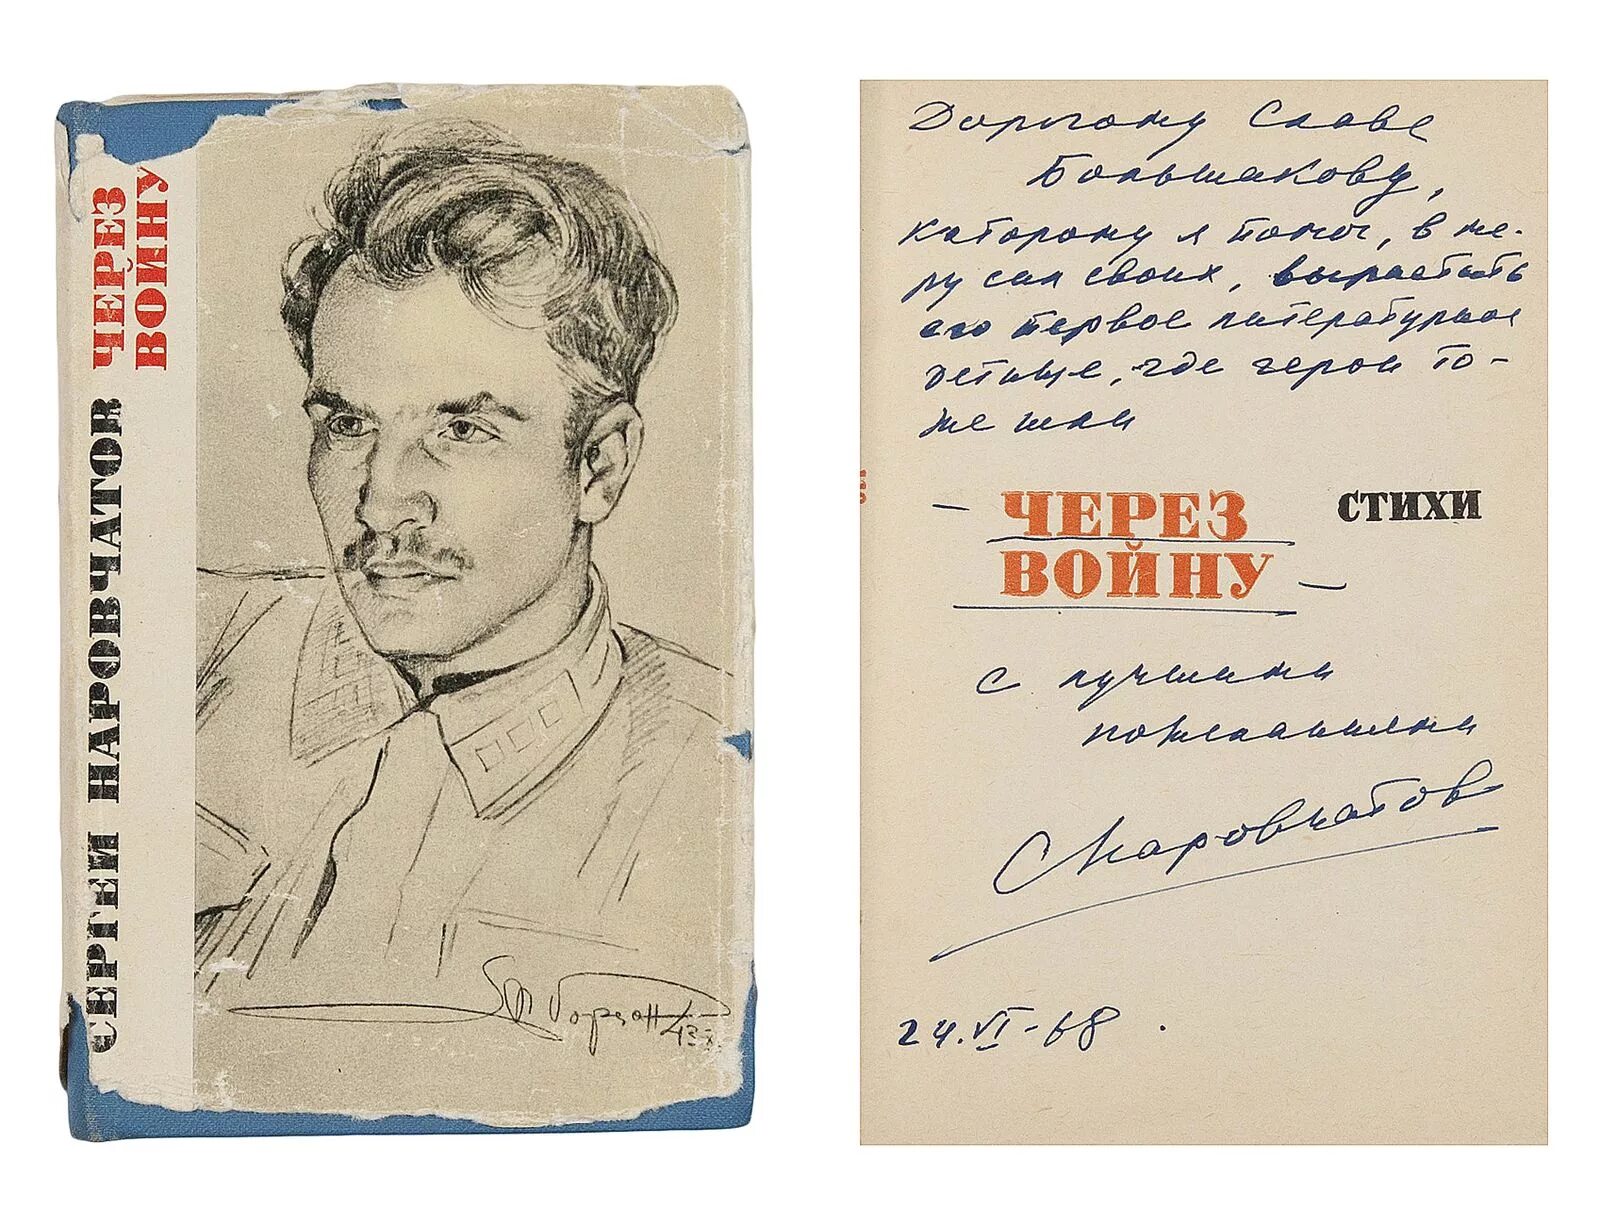 СЕРГЕЙ НАРОВЧАТОВ
ЧЕРЕЗ
ВОЙНУ
43
Дорогому Славе
Большакову,
которому я помог, в ме-
ру сил своих, вырастить
его первое литературное
детище, где герои то-
же шли
– ЧЕРЕЗ
ВОЙНУ –
СТИХИ
с лучшими
пожеланиями
С Наровчатов
24.VI-68.